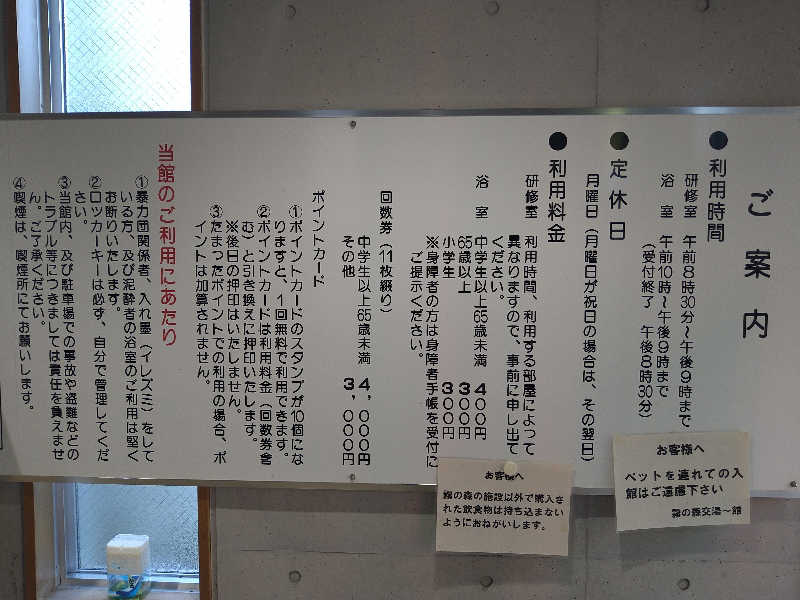 ご案内
●利用時間
研修室 午前8時30分~午後9時まで
浴室 午前10時~午後9時まで
(受付終了 午後8時30分)
●定休日
月曜日(月曜日が祝日の場合は、その翌日)
●利用料金
研修室 利用時間、利用する部屋によって
異なりますので、事前に申し出て
ください。
浴室 中学生以上65歳未満 400円
65歳以上 300円
小学生 300円
※身障者の方は身障者手帳を受付に
ご提示ください。
回数券(11枚綴り)
中学生以上65歳未満 4,000円
その他 3,000円
ポイントカード
①ポイントカードのスタンプが10個にな
りますと、1回無料で利用できます。
②ポイントカードは利用料金(回数券含
む)と引き換えに押印いたします。
※後日の押印はいたしません。
③たまったポイントでの利用の場合、ポ
イントは加算されません。
当館のご利用にあたり
①暴力団関係者、入れ墨(イレズミ)をして
いる方、及び泥酔者の浴室のご利用は堅く
お断りいたします。
②ロッカーキーは必ず、自分で管理してくだ
さい。
③当館内、及び駐車場での事故や盗難などの
トラブル等につきましては責任を負えませ
ん。ご了承ください。
④喫煙は、喫煙所にてお願いします。
お客様へ
霧の森の施設以外で購入さ
れた飲食物は持ち込まない
ようにおねがいします。
お客様へ
ペットを連れての入
館はご遠慮下さい
霧の森交湯~館